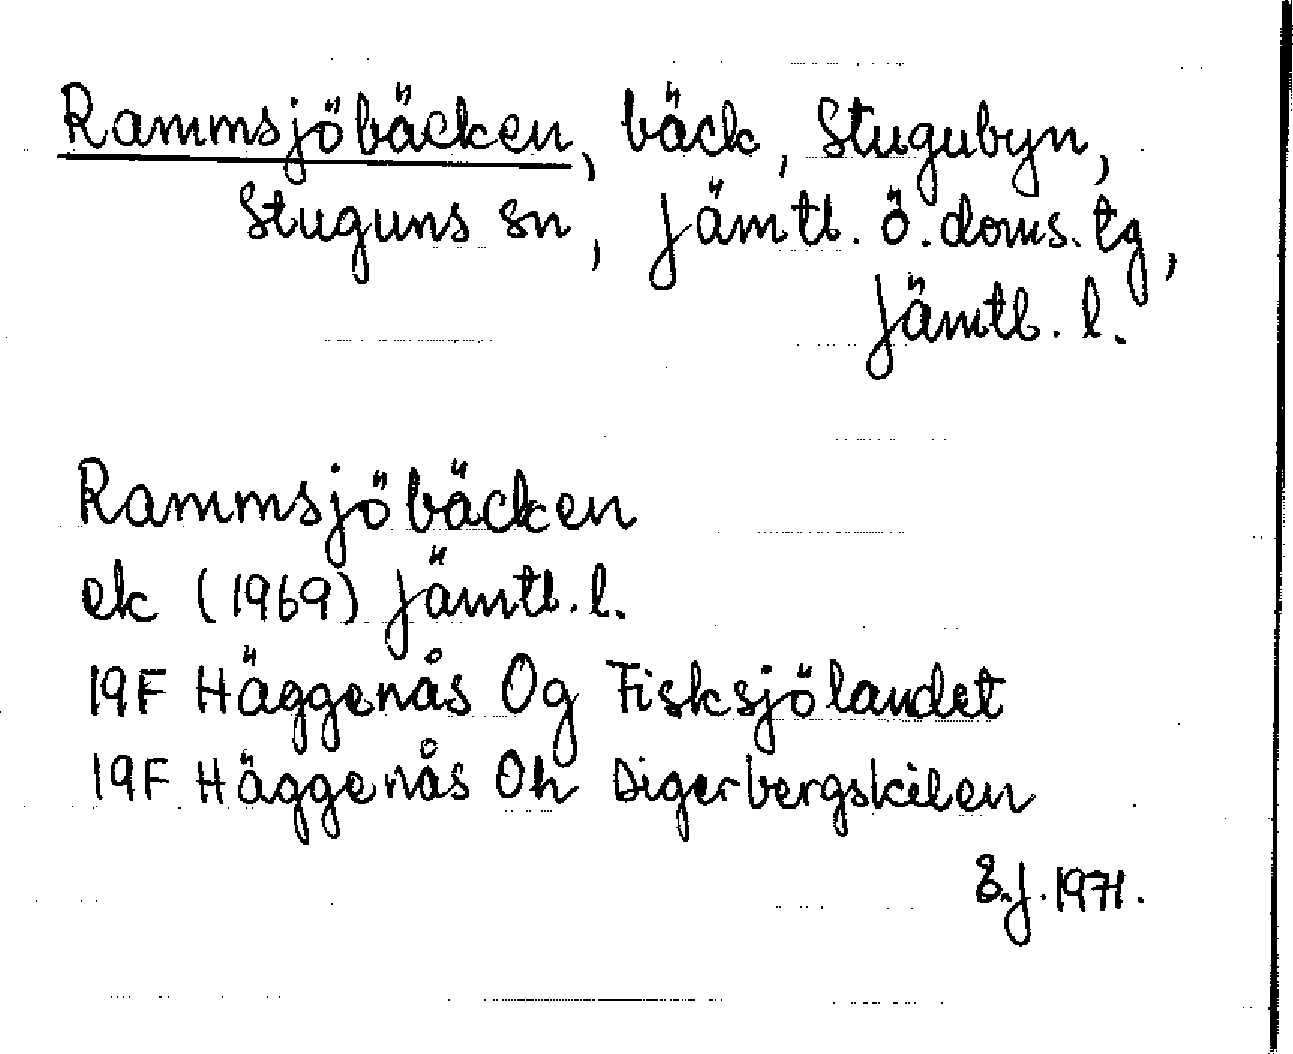 Rammsjöbäcken, bäck, Stugubyn,
Stuguns sn, Jämtl. ö. doms. tg,
Jämtl. l.
Rammsjöbäcken
ek (1969) Jämtl. l.
19F Häggenås 0g Fisksjölandet
19F Häggenås 0h Digerbergskilen
E.J. 1971.